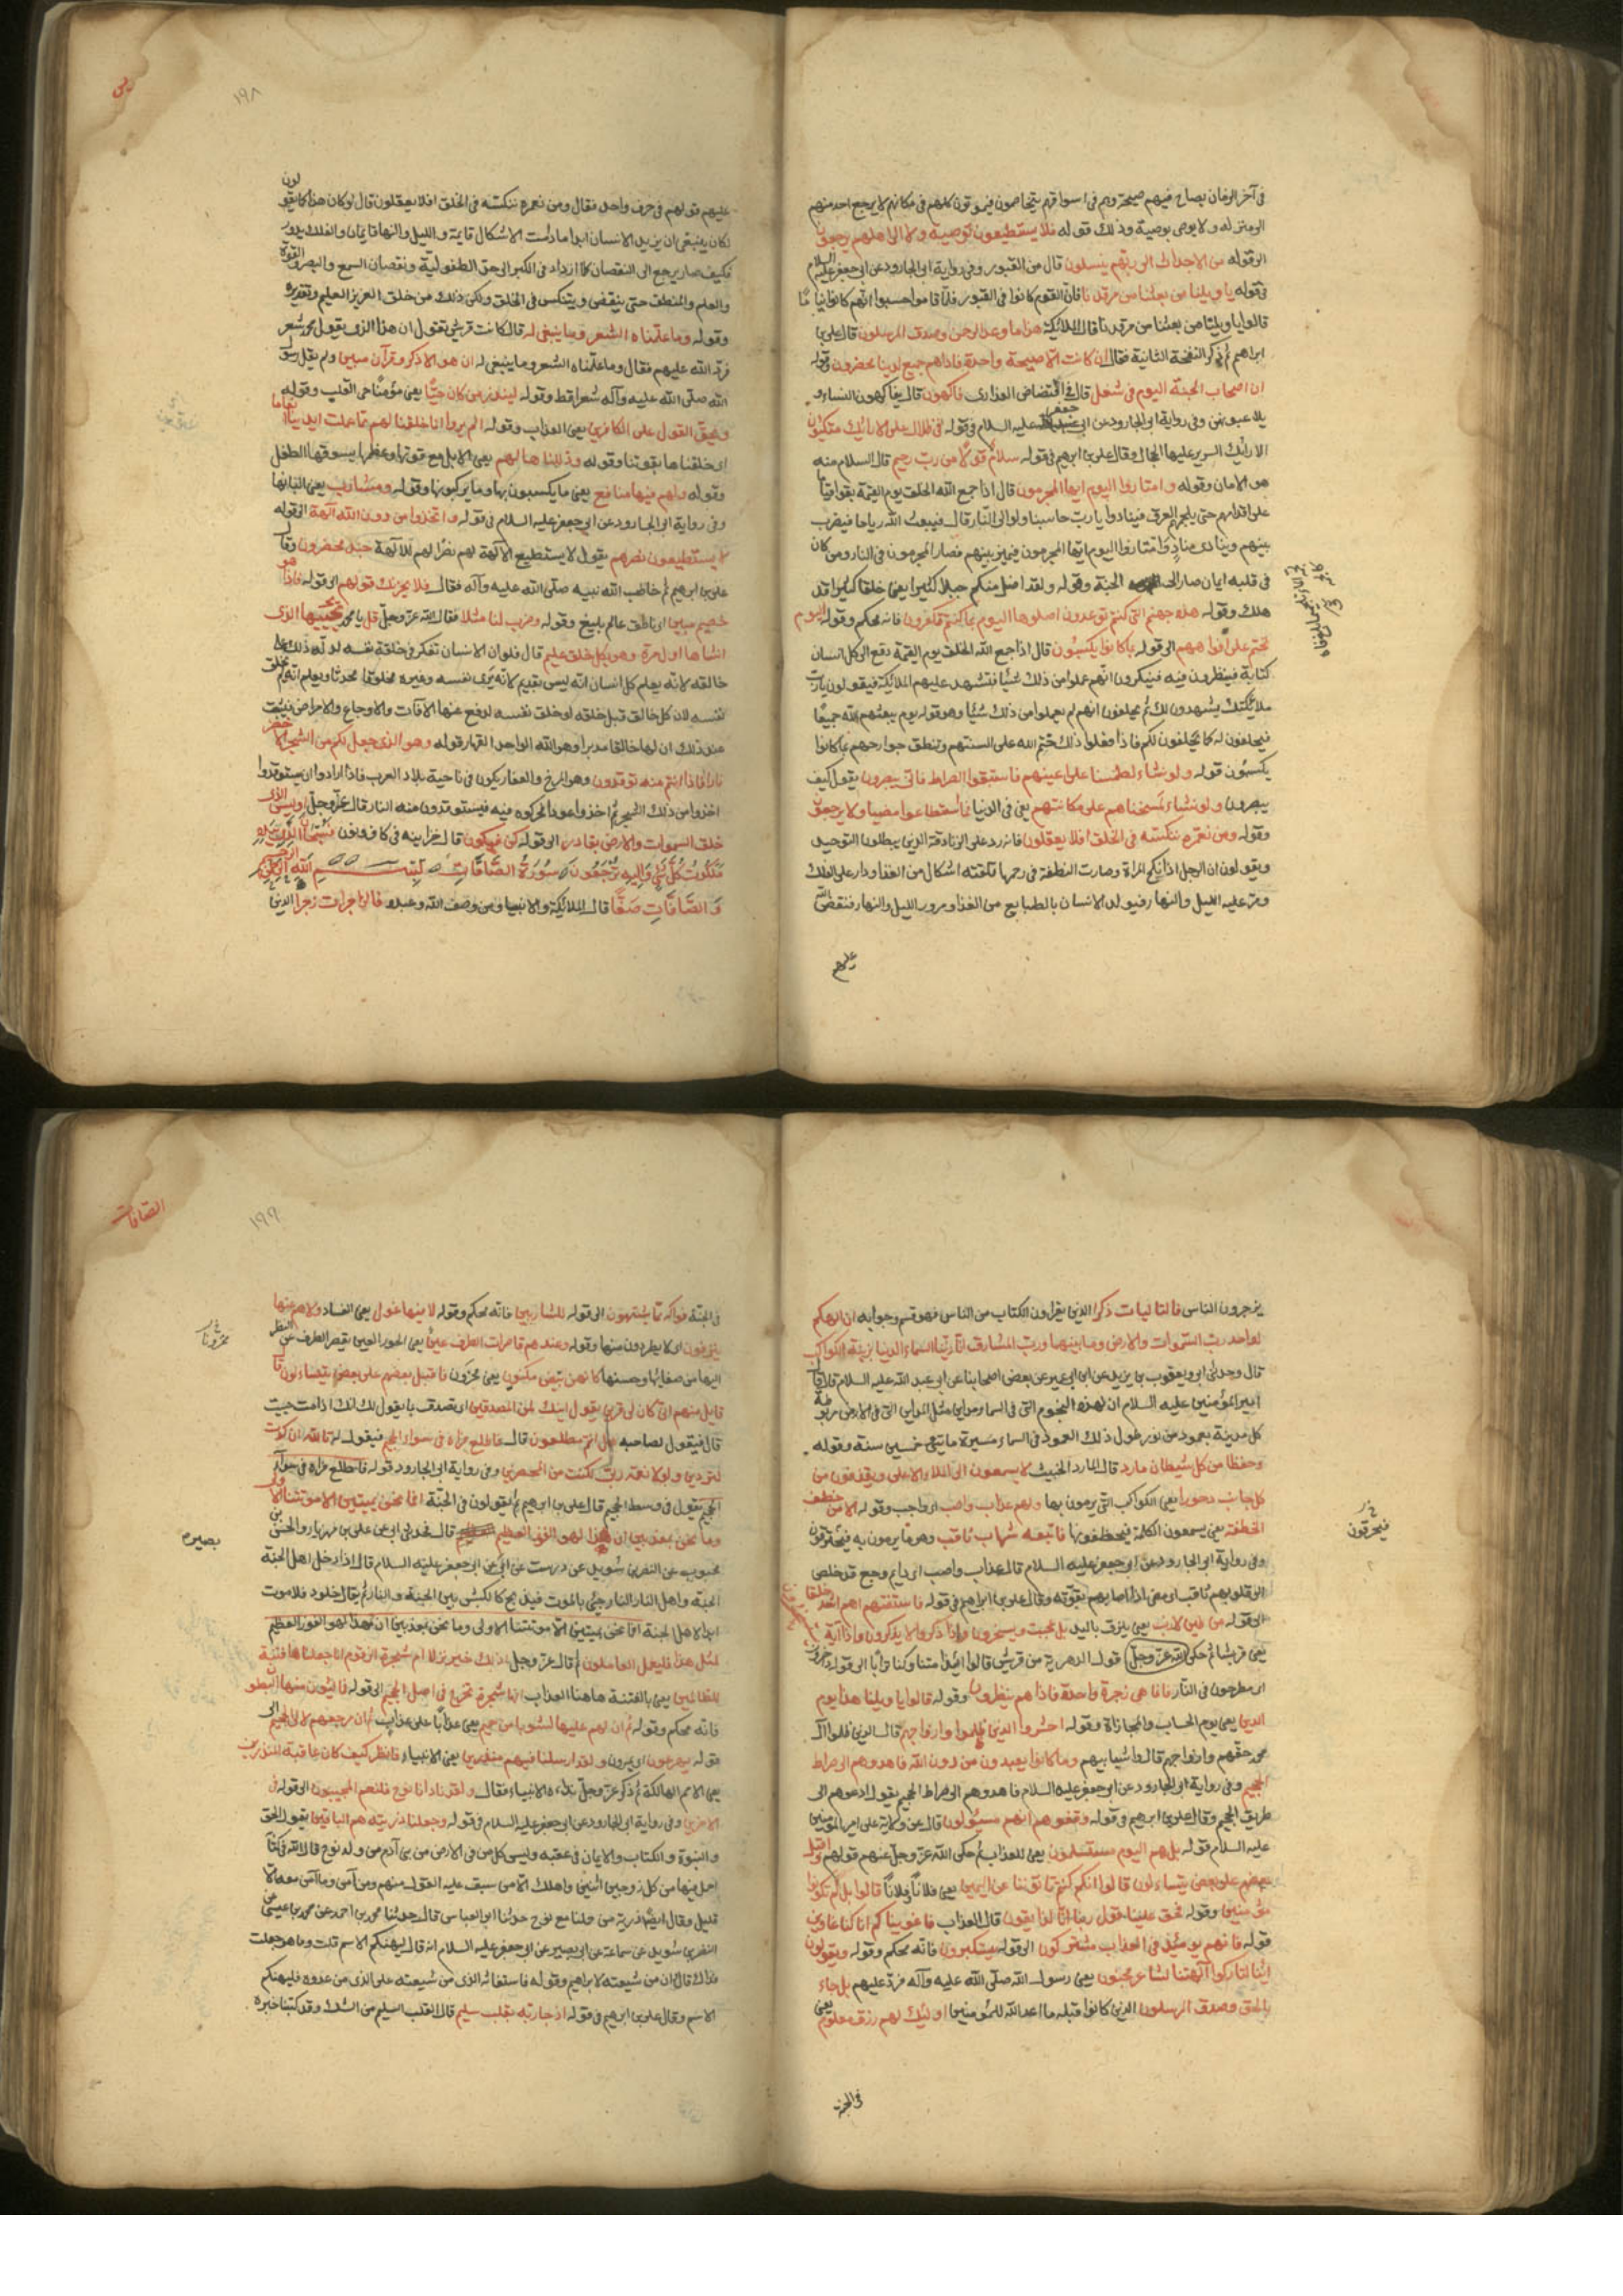 في آخر الزمان يصاح فيهم صيحة وهم في اسواقهم يتخاصمون فيموتون كلهم في مكانهم لا يرجع احد منهم
الى منزله ولا يوصي بوصية وذلك قوله فلا يستطيعون توصية ولا الى اهلهم يرجعون
الى قوله من الاجداث الى ربهم ينسلون قال من القبور وفي رواية ابي الجارود عن ابي جعفر عليه السلام
في قوله يا ويلنا من بعثنا من مرقدنا فان القوم كانوا في القبور فلما قاموا حسبوا انهم كانوا نياما
قالوا يا ويلنا من بعثنا من مرقدنا قال الملائكة هذا ما وعد الرحمن وصدق المرسلون قال علي بن
ابراهيم ثم ذكر النفخة الثانية فقال ان كانت الا صيحة واحدة فاذا هم جميع لدينا محضرون وقوله
ان اصحاب الجنة اليوم في شغل قال في افتضاض العذارى فاكهون قال يفاكهون النساء و
يلاعبونهن وفي رواية ابي الجارود عن ابي جعفر عليه السلام في قوله في ظلال على الارائك متكئون
الارائك السرير عليها الحجال وقال علي بن ابراهيم في قوله سلام قولا من رب رحيم قال السلام منه
هو الامان وقوله وامتازوا اليوم ايها المجرمون قال اذا جمع الله الخلق يوم القيمة بقوا قياما
على اقدامهم حتى يلجمهم العرق فينادوا يا رب حاسبنا ولو الى النار قال فيبعث الله رياحا فيضرب
بينهم وينادي مناد وامتازوا اليوم ايها المجرمون فيميز بينهم فصار المجرمون في النار ومن كان
في قلبه ايمان صار الى الجنة وقوله ولقد اضل منكم جبلا كثيرا يعني خلقا كثيرا قد
هلك وقوله هذه جهنم التي كنتم توعدون اصلوها اليوم بما كنتم تكفرون فانه محكم وقوله اليوم
نختم على افواههم الى قوله بما كانوا يكسبون قال اذا جمع الله الخلق يوم القيمة دفع الى كل انسان
كتابة فينظرون فيه فينكرون انهم عملوا من ذلك شيئا فتشهد عليهم الملائكة فيقولون يا رب
ملائكتك يشهدون لك ثم يحلفون انهم لم يعملوا من ذلك شيئا وهو قوله يوم يبعثهم الله جميعا
فيحلفون له كما يحلفون لكم فاذا فعلوا ذلك ختم الله على السنتهم وتنطق جوارحهم بما كانوا
يكسبون قوله ولو نشاء لطمسنا على اعينهم فاستبقوا الصراط فانى يبصرون يقول كيف
يبصرون ولو نشاء لمسخناهم على مكانتهم يعني في الدنيا فما استطاعوا مضيا ولا يرجعون
وقوله ومن نعمره ننكسه في الخلق افلا يعقلون فانه رد على الزنادقة الذين يبطلون التوحيد
ويقولون ان الرجل اذا نكح المراة وصارت النطفة في رحمها تلقته اشكال من الغذا ودار عليه الفلك
ومر عليه الليل والنهار فيولد الانسان بالطبايع من الغذا ومرور الليل والنهار فنقض الله
عليهم
يس
١٩٨
عليهم قولهم في حرف واحد فقال ومن نعمره ننكسه في الخلق افلا يعقلون قال لو كان هذا كما يقولون
لكان ينبغي ان يزيد الانسان ابدا ما دامت الاشكال قايمة والليل والنهار قايمان والفلك يدور
فكيف صار يرجع الى النقصان كلما ازداد في الكبر الى حق الطفولية ونقصان السمع والبصر والقوة
والعلم والمنطق حتى ينقص ويتنكس في الخلق ولكن ذلك من خلق العزيز العليم وتقديره
وقوله وما علمناه الشعر وما ينبغي له قال كانت قريش تقول ان هذا الذي يقول محمد شعر
فرد الله عليهم فقال وما علمناه الشعر وما ينبغي له ان هو الا ذكر وقرآن مبين ولم يقل رسول
الله صلى الله عليه وآله شعرا قط وقوله لينذر من كان حيا يعني مؤمنا حي القلب وقوله
ويحق القول على الكافرين يعني العذاب وقوله الم يروا انا خلقنا لهم مما عملت ايدينا انعاما
اي خلقناها بقوتنا وقوله وذللناها لهم يعني الابل مع قوتها وعظمها يسوقها الطفل
وقوله ولهم فيها منافع يعني ما يكسبون بها وما يركبونها وقوله ومشارب يعني البانها
وفي رواية ابي الجارود عن ابي جعفر عليه السلام في قوله واتخذوا من دون الله آلهة الى قوله
لا يستطيعون نصرهم يقول لا يستطيع الآلهة لهم نصرا لهم للآلهة جند محضرون وقال
علي بن ابراهيم ثم خاطب الله نبيه صلى الله عليه وآله فقال فلا يحزنك قولهم الى قوله فاذا هو
خصيم مبين اي ناطق عالم بليغ وقوله وضرب لنا مثلا فقال الله عز وجل قل يا محمد يحييها الذي
انشاها اول مرة وهو بكل خلق عليم قال فلو ان الانسان تفكر في خلقة نفسه لدله ذلك على
خالقه لانه يعلم كل انسان انه ليس بقديم لانه يرى نفسه وغيره مخلوقا محدثا ويعلم انه لم يخلق
نفسه لان كل خالق قبل خلقه لو خلق نفسه لدفع عنها الآفات والاوجاع والامراض فيثبت
عند ذلك ان لها خالقا مدبرا وهو الله الواحد القهار قوله وهو الذي جعل لكم من الشجر الاخضر
نارا فاذا انتم منه توقدون وهو المرخ والعفار يكون في ناحية بلاد العرب فاذا ارادوا ان يستوقدوا
اخذوا من ذلك الشجر ثم اخذوا عودا فحركوه فيه فيستوقدون منه النار قال عز وجل اوليس الذي
خلق السموات والارض بقادر الى قوله كن فيكون قال خزاينه في كاف ونون فسبحان الذي بيده
ملكوت كل شئ واليه ترجعون سورة الصافات بسم الله الرحمن الرحيم
والصافات صفا قال الملائكة والانبيا ومن وصف الله وعبده فالزاجرات زجرا الذين
يزجرون الناس فالتاليات ذكرا الذين يقرءون الكتاب من الناس فهو قسم وجوابه ان الهكم
لواحد رب السموات والارض وما بينهما ورب المشارق انا زينا السماء الدنيا بزينة الكواكب
قال وحدثني ابي ويعقوب بن يزيد عن ابن ابي عمير عن بعض اصحابنا عن ابي عبد الله عليه السلام قال قال
امير المؤمنين عليه السلام ان لهذه النجوم التي في السماء مداين مثل المداين التي في الارض مربوطة
كل مدينة بعمود من نور طول ذلك العمود في السماء مسيرة مايتي خمسين سنة وقوله
وحفظا من كل شيطان مارد قال المارد الخبيث لا يسمعون الى الملاء الاعلى ويقذفون من
كل جانب دحورا يعني الكواكب التي يرمون بها ولهم عذاب واصب اي واجب وقوله الا من خطف
الخطفة يعني يسمعون الكلمة فيحفظونها فاتبعه شهاب ثاقب وهو ما يرمون به فيحترقون
فيحرقون
وفي رواية ابي الجارود عن ابي جعفر عليه السلام قال عذاب واصب اي دايم وجع قد خلص
الى قلوبهم ثاقب اي مضى اذا اصابهم بقوته وقال علي بن ابراهيم في قوله فاستفتهم اهم اشد خلقا
الى قوله من طين لازب يعني يلزق باليد بل عجبت ويسخرون واذا ذكروا لا يذكرون واذا راوا آية
يعني قريشا ثم حكى الله عز وجل قول الدهرية من قريش قالوا ائذا متنا وكنا ترابا الى قوله داخرون
اي مطرحون في النار فانما هي زجرة واحدة فاذا هم ينظرون وقوله قالوا يا ويلنا هذا يوم
الدين يعني يوم الحساب والمجازاة وقوله احشروا الذين ظلموا وازواجهم قال الذين ظلموا آل
محمد حقهم وازواجهم قال واشباههم وما كانوا يعبدون من دون الله فاهدوهم الى صراط
الجحيم وفي رواية ابي الجارود عن ابي جعفر عليه السلام فاهدوهم الى صراط الجحيم يقول ادعوهم الى
طريق الجحيم وقال علي بن ابراهيم في قوله وقفوهم انهم مسئولون قال عن ولاية علي امير المؤمنين
عليه السلام قوله بل هم اليوم مستسلمون يعني للعذاب ثم حكى الله عز وجل عنهم قولهم واقبل
بعضهم على بعض يتساءلون قالوا انكم كنتم تاتوننا عن اليمين يعني فلانا وفلانا قالوا بل لم تكونوا
مؤمنين وقوله فحق علينا قول ربنا انا لذايقون قال العذاب فاغويناكم انا كنا غاوين
قوله فانهم يومئذ في العذاب مشتركون الى قوله يستكبرون فانه محكم وقوله ويقولون
ائنا لتاركوا آلهتنا لشاعر مجنون يعني رسول الله صلى الله عليه وآله فرد عليهم بل جاء
بالحق وصدق المرسلون الذين كانوا قبله ما اعد الله للمؤمنين اولئك لهم رزق معلوم يعني
في الجنة
الصافات
١٩٩
في الجنة فواكه مما يشتهون الى قوله للشاربين فانه محكم وقوله لا فيها غول يعني الفساد ولا هم عنها
ينزفون اي لا يطردون منها وقوله وعندهم قاصرات الطرف عين يعني الحور العين يقصر الطرف عن النظر
اليها من صفائها وحسنها كانهن بيض مكنون يعني مخزون فاقبل بعضهم على بعض يتساءلون قال
قايل منهم اني كان لي قرين يقول ائنك لمن المصدقين اي تصدق بما يقول لك انك اذا مت حييت
قال فيقول لصاحبه هل انتم مطلعون قال فاطلع فراه في سواء الجحيم فيقول له تالله ان كدت
لتردين ولولا نعمة ربي لكنت من المحضرين وفي رواية ابي الجارود قوله فاطلع فراه في سواء
الجحيم يقول في وسط الجحيم قال علي بن ابراهيم ثم يقولون في الجنة افما نحن بميتين الا موتتنا الاولى
وما نحن بمعذبين ان هذا لهو الفوز العظيم قال فحدثني ابي عن علي بن مهزيار والحسن بن
محبوب عن النضر بن سويد عن درست عن ابي بصير عن ابي جعفر عليه السلام قال اذا دخل اهل الجنة
بصير
الجنة واهل النار النار جئ بالموت فيذبح كالكبش بين الجنة والنار ثم يقال خلود فلا موت
ابدا لاهل الجنة افما نحن بميتين الا موتتنا الاولى وما نحن بمعذبين ان هذا لهو الفوز العظيم
لمثل هذا فليعمل العاملون ثم قال عز وجل اذلك خير نزلا ام شجرة الزقوم انا جعلناها فتنة
للظالمين يعني بالفتنة هاهنا العذاب انها شجرة تخرج في اصل الجحيم الى قوله فمالئون منها البطون
فانه محكم وقوله ثم ان لهم عليها لشوبا من حميم يعني عذابا على عذاب ثم ان مرجعهم لالى الجحيم الى
قوله يهرعون اي يمرون ولقد ارسلنا فيهم منذرين يعني الانبياء فانظر كيف كان عاقبة المنذرين
يعني الامم الهالكة ثم ذكر عز وجل نداء الانبياء فقال ولقد نادانا نوح فلنعم المجيبون الى قوله في
الآخرين وفي رواية ابي الجارود عن ابي جعفر عليه السلام في قوله وجعلنا ذريته هم الباقين يقول الحق
والنبوة والكتاب والايمان في عقبه وليس كل من في الارض من بني آدم من ولد نوح قال الله في كتابه
احمل فيها من كل زوجين اثنين واهلك الا من سبق عليه القول منهم ومن آمن وما آمن معه الا
قليل وقال ايضا ذرية من حملنا مع نوح حدثنا ابو العباس قال حدثنا محمد بن احمد عن محمد بن عيسى عن
النضر بن سويد عن سماعة عن ابي بصير عن ابي جعفر عليه السلام انه قال ليهنكم الاسم قلت وما هو جعلت
فداك قال ان من شيعته لابراهيم وقوله فاستغاثه الذي من شيعته على الذي من عدوه فليهنكم
الاسم وقال علي بن ابراهيم في قوله اذ جاء ربه بقلب سليم قال القلب السليم من الشك وقد كتبنا خبره